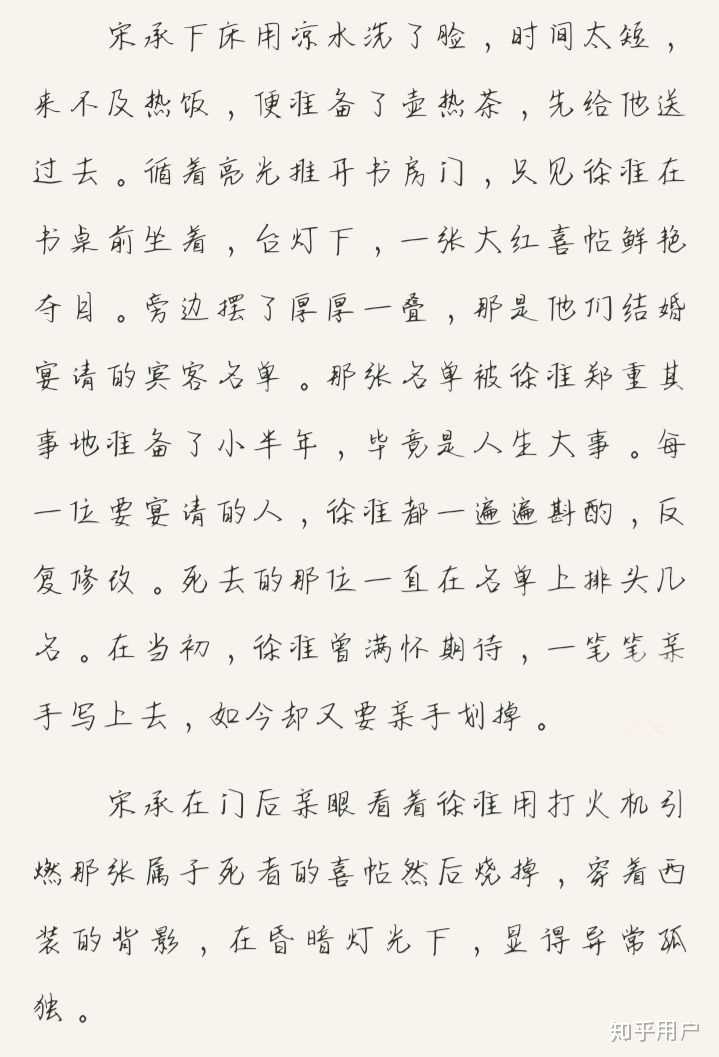 宋承下床用凉水洗了脸，时间太短，
来不及热饭，便准备了壶热茶，先给他送
过去。循着亮光推开书房门，只见徐准在
书桌前坐着，台灯下，一张大红喜帖鲜艳
夺目。旁边摆了厚厚一叠，那是他们结婚
宴请的宾客名单。那张名单被徐准郑重其
事地准备了小半年，毕竟是人生大事。每
一位要宴请的人，徐准都一遍遍斟酌，反
复修改。死去的那位一直在名单上排头几
名。在当初，徐准曾满怀期待，一笔笔亲
手写上去，如今却又要亲手划掉。
宋承在门后亲眼看着徐准用打火机引
燃那张属于死者的喜帖然后烧掉，穿着西
装的背影，在昏暗灯光下，显得异常孤
独。
知乎用户